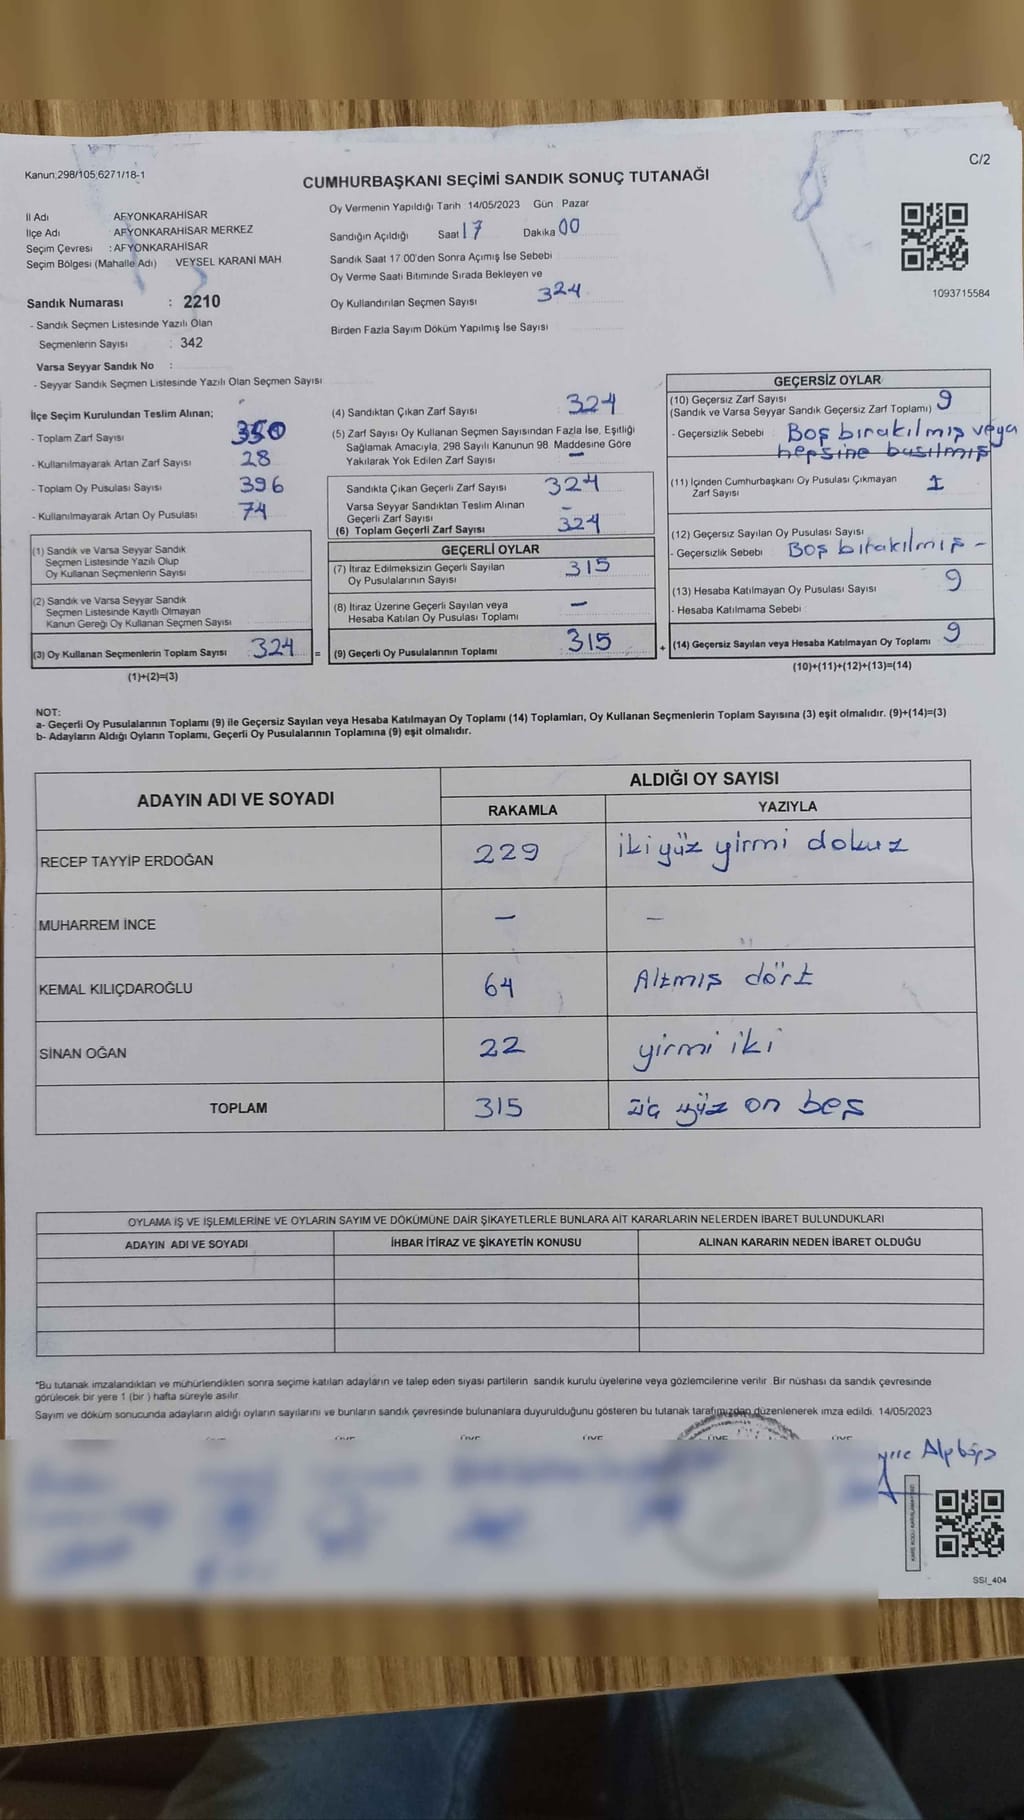 Kanun;298/105,6271/18-1
C/2
CUMHURBAŞKANI SEÇİMİ SANDIK SONUÇ TUTANAĞI
İl Adı AFYONKARAHİSAR
İlçe Adı AFYONKARAHİSAR MERKEZ
Seçim Çevresi : AFYONKARAHİSAR
Seçim Bölgesi (Mahalle Adı) VEYSEL KARANİ MAH
Sandık Numarası : 2210
- Sandık Seçmen Listesinde Yazılı Olan
Seçmenlerin Sayısı : 342
Varsa Seyyar Sandık No :
- Seyyar Sandık Seçmen Listesinde Yazılı Olan Seçmen Sayısı
Oy Vermenin Yapıldığı Tarih : 14/05/2023 Gün : Pazar
Sandığın Açıldığı Saat 17 Dakika 00
Sandık Saat 17.00'den Sonra Açımış İse Sebebi
Oy Verme Saati Bitiminde Sırada Bekleyen ve
Oy Kullandırılan Seçmen Sayısı 324
Birden Fazla Sayım Döküm Yapılmış İse Sayısı
1093715584
İlçe Seçim Kurulundan Teslim Alınan;
- Toplam Zarf Sayısı 350
- Kullanılmayarak Artan Zarf Sayısı 28
- Toplam Oy Pusulası Sayısı 396
- Kullanılmayarak Artan Oy Pusulası 74
(1) Sandık ve Varsa Seyyar Sandık
Seçmen Listesinde Yazılı Olup
Oy Kullanan Seçmenlerin Sayısı
(2) Sandık ve Varsa Seyyar Sandık
Seçmen Listesinde Kayıtlı Olmayan
Kanun Gereği Oy Kullanan Seçmen Sayısı
(3) Oy Kullanan Seçmenlerin Toplam Sayısı 324 =
(1)+(2)=(3)
(4) Sandıktan Çıkan Zarf Sayısı 324
(5) Zarf Sayısı Oy Kullanan Seçmen Sayısından Fazla İse, Eşitliği
Sağlamak Amacıyla, 298 Sayılı Kanunun 98. Maddesine Göre
Yakılarak Yok Edilen Zarf Sayısı –
Sandıkta Çıkan Geçerli Zarf Sayısı 324
Varsa Seyyar Sandıktan Teslim Alınan
Geçerli Zarf Sayısı –
(6) Toplam Geçerli Zarf Sayısı 324
GEÇERLİ OYLAR
(7) İtiraz Edilmeksizin Geçerli Sayılan
Oy Pusulalarının Sayısı 315
(8) İtiraz Üzerine Geçerli Sayılan veya
Hesaba Katılan Oy Pusulası Toplamı –
(9) Geçerli Oy Pusulalarının Toplamı 315 +
GEÇERSİZ OYLAR
(10) Geçersiz Zarf Sayısı
(Sandık ve Varsa Seyyar Sandık Geçersiz Zarf Toplamı) 9
- Geçersizlik Sebebi Boş bırakılmış veya
hepsine basılmış
(11) İçinden Cumhurbaşkanı Oy Pusulası Çıkmayan
Zarf Sayısı 1
(12) Geçersiz Sayılan Oy Pusulası Sayısı
- Geçersizlik Sebebi Boş bırakılmış –
(13) Hesaba Katılmayan Oy Pusulası Sayısı 9
- Hesaba Katılmama Sebebi
(14) Geçersiz Sayılan veya Hesaba Katılmayan Oy Toplamı 9
(10)+(11)+(12)+(13)=(14)
NOT:
a- Geçerli Oy Pusulalarının Toplamı (9) ile Geçersiz Sayılan veya Hesaba Katılmayan Oy Toplamı (14) Toplamları, Oy Kullanan Seçmenlerin Toplam Sayısına (3) eşit olmalıdır. (9)+(14)=(3)
b- Adayların Aldığı Oyların Toplamı, Geçerli Oy Pusulalarının Toplamına (9) eşit olmalıdır.
ADAYIN ADI VE SOYADI
ALDIĞI OY SAYISI
RAKAMLA YAZIYLA
RECEP TAYYİP ERDOĞAN 229 iki yüz yirmi dokuz
MUHARREM İNCE – –
KEMAL KILIÇDAROĞLU 64 Altmış dört
SİNAN OĞAN 22 yirmi iki
TOPLAM 315 üç yüz on beş
OYLAMA İŞ VE İŞLEMLERİNE VE OYLARIN SAYIM VE DÖKÜMÜNE DAİR ŞİKAYETLERLE BUNLARA AİT KARARLARIN NELERDEN İBARET BULUNDUKLARI
ADAYIN ADI VE SOYADI İHBAR İTİRAZ VE ŞİKAYETİN KONUSU ALINAN KARARIN NEDEN İBARET OLDUĞU
*Bu tutanak imzalandıktan ve mühürlendikten sonra seçime katılan adayların ve talep eden siyasi partilerin sandık kurulu üyelerine veya gözlemcilerine verilir. Bir nüshası da sandık çevresinde
görülecek bir yere 1 (bir ) hafta süreyle asılır.
Sayım ve döküm sonucunda adayların aldığı oyların sayılarını ve bunların sandık çevresinde bulunanlara duyurulduğunu gösteren bu tutanak tarafımızdan düzenlenerek imza edildi. 14/05/2023
SSI_404